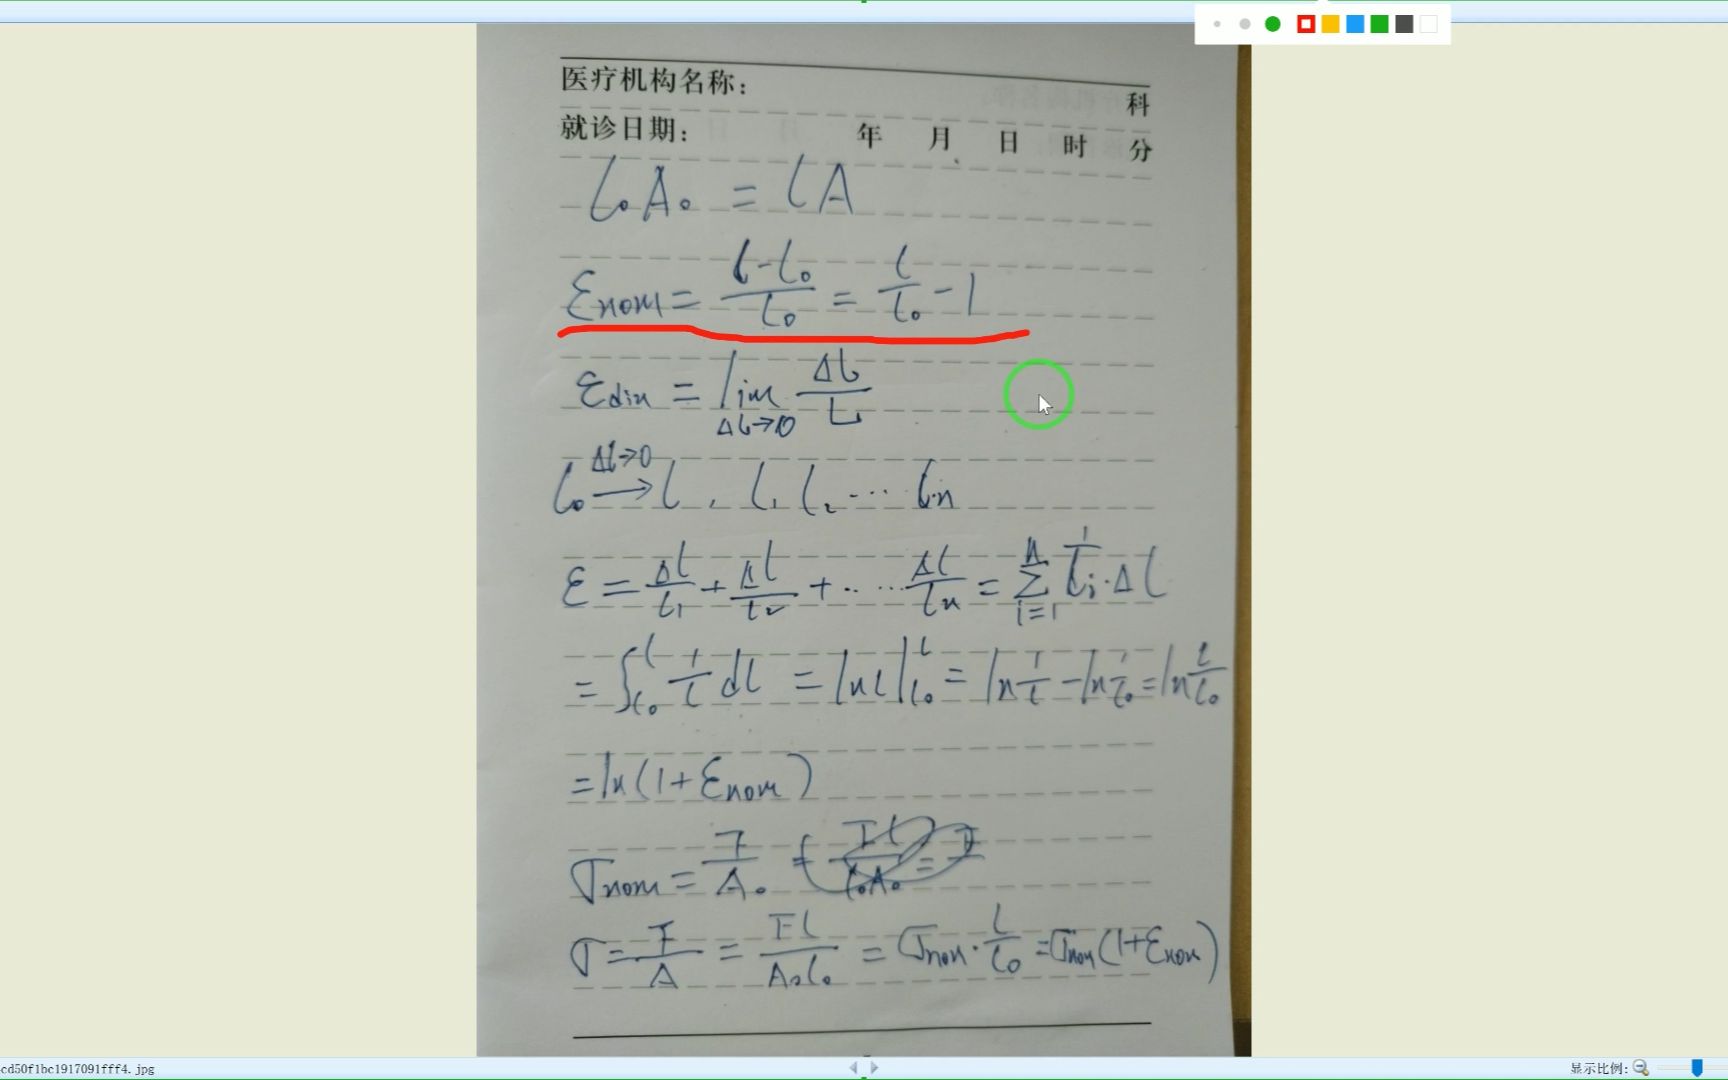 医疗机构名称： 科
就诊日期： 年 月 日 时 分
l₀A₀ = lA
εnom = (l-l₀)/l₀ = l/l₀ - 1
εdin = lim Δl→0 Δl/L
l₀ →(Δl→0) l , l₁ l₂ … ln
ε = Δl/l₁ + Δl/l₂ + … … Δl/ln = Σ(i=1, n) 1/li · Δl
= ∫(l₀, l) 1/l dl = ln l |(l₀, l) = ln 1/l - ln 1/l₀ = ln l/l₀
= ln(1+εnom)
σnom = F/A₀
σ = F/A = Fl/A₀l₀ = σnom · l/l₀ = σnom(1+εnom)
cd50f1bc1917091fff4.jpg
显示比例: